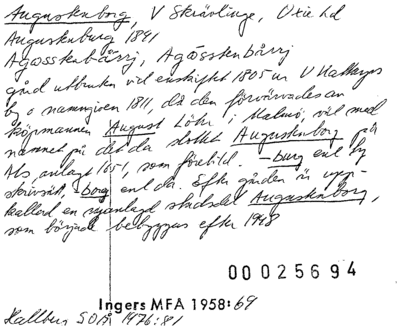 Augustenborg, V Skrävlinge, Oxie hd
Augustenburg 1891
Agåsstenbårrj, Agåsstenbårrj
gård utbruten vid enskiftet 1805 ur V Kattarps
by o namngiven 1811, då den förvärvades av
köpmannen August Löhr i Malmö, väl med
namnet på det da slottet Augustenborg på
Als, anlagt 1651, som förebild. -burg enl ty
skrivsätt, -borg enl da. Efter gården är upp-
kallad en nyanlagd stadsdel Augustenborg,
som började bebyggas efter 1948
00025694
Ingers MFA 1958:69
Hallberg SOÅ 1976:81